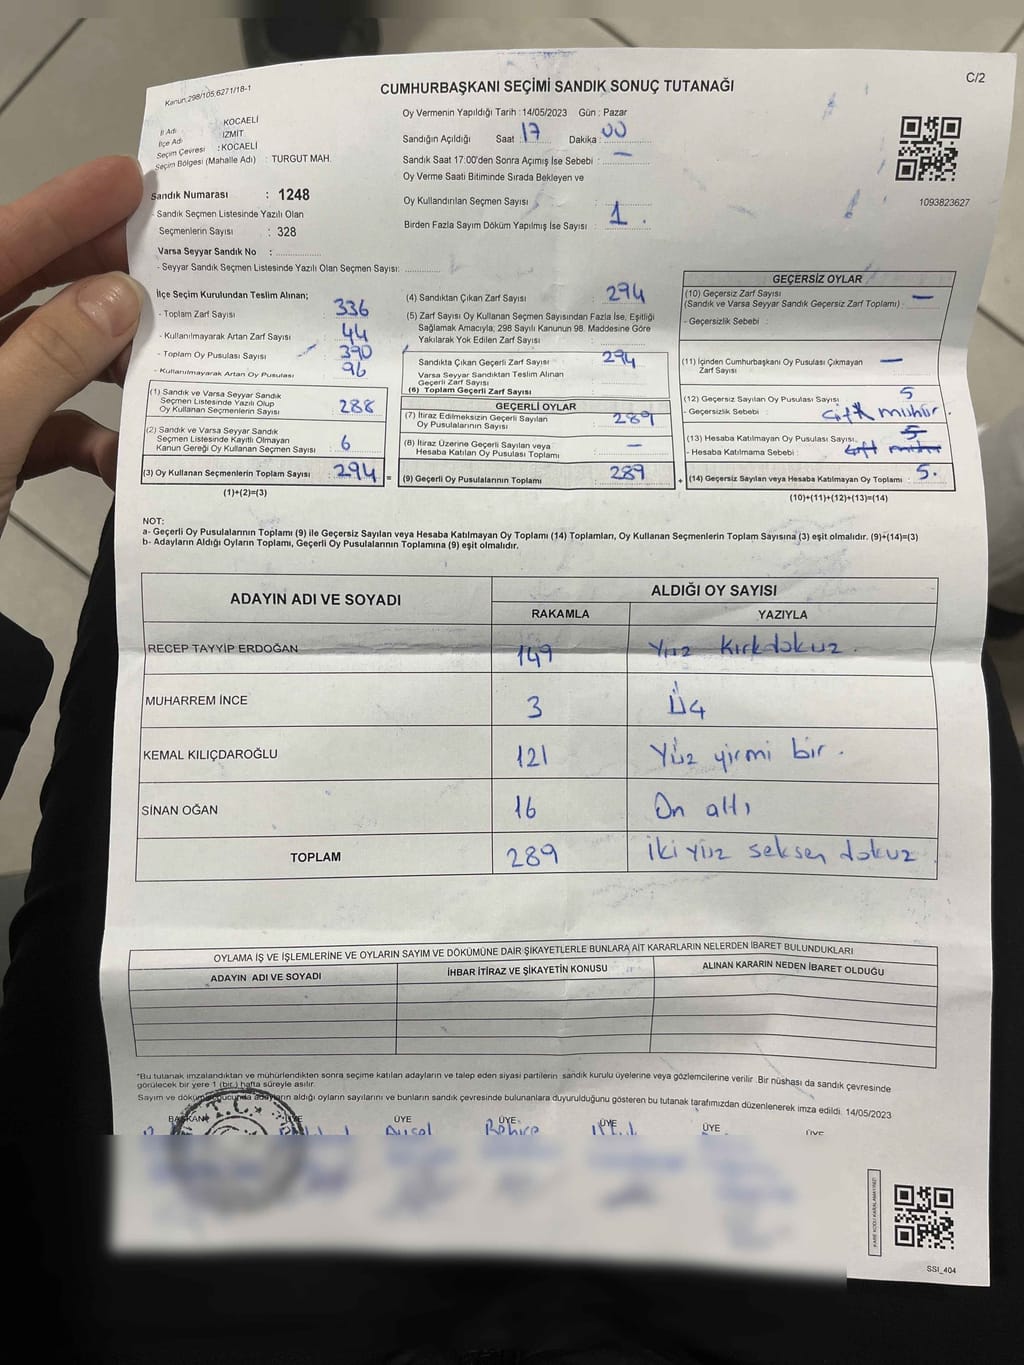 Kanun:298/105,6271/18-1
CUMHURBAŞKANI SEÇİMİ SANDIK SONUÇ TUTANAĞI
C/2
İl Adı : KOCAELİ
İlçe Adı : İZMİT
Seçim Çevresi : KOCAELİ
Seçim Bölgesi (Mahalle Adı) : TURGUT MAH.
Sandık Numarası : 1248
- Sandık Seçmen Listesinde Yazılı Olan
Seçmenlerin Sayısı : 328
Varsa Seyyar Sandık No :
- Seyyar Sandık Seçmen Listesinde Yazılı Olan Seçmen Sayısı:
Oy Vermenin Yapıldığı Tarih : 14/05/2023 Gün : Pazar
Sandığın Açıldığı Saat : 17 Dakika : 00
Sandık Saat 17:00'den Sonra Açımış İse Sebebi : —
Oy Verme Saati Bitiminde Sırada Bekleyen ve
Oy Kullandırılan Seçmen Sayısı :
Birden Fazla Sayım Döküm Yapılmış İse Sayısı : 1.
1093823627
İlçe Seçim Kurulundan Teslim Alınan;
- Toplam Zarf Sayısı : 336
- Kullanılmayarak Artan Zarf Sayısı : 44
- Toplam Oy Pusulası Sayısı : 390
- Kullanılmayarak Artan Oy Pusulası : 96
(1) Sandık ve Varsa Seyyar Sandık
Seçmen Listesinde Yazılı Olup
Oy Kullanan Seçmenlerin Sayısı : 288
(2) Sandık ve Varsa Seyyar Sandık
Seçmen Listesinde Kayıtlı Olmayan
Kanun Gereği Oy Kullanan Seçmen Sayısı : 6
(3) Oy Kullanan Seçmenlerin Toplam Sayısı : 294
(1)+(2)=(3)
=
(4) Sandıktan Çıkan Zarf Sayısı : 294
(5) Zarf Sayısı Oy Kullanan Seçmen Sayısından Fazla İse, Eşitliği
Sağlamak Amacıyla; 298 Sayılı Kanunun 98. Maddesine Göre
Yakılarak Yok Edilen Zarf Sayısı :
Sandıkta Çıkan Geçerli Zarf Sayısı : 294
Varsa Seyyar Sandıktan Teslim Alınan
Geçerli Zarf Sayısı :
(6) Toplam Geçerli Zarf Sayısı :
GEÇERLİ OYLAR
(7) İtiraz Edilmeksizin Geçerli Sayılan
Oy Pusulalarının Sayısı : 289
(8) İtiraz Üzerine Geçerli Sayılan veya
Hesaba Katılan Oy Pusulası Toplamı : —
(9) Geçerli Oy Pusulalarının Toplamı : 289
+
GEÇERSİZ OYLAR
(10) Geçersiz Zarf Sayısı
(Sandık ve Varsa Seyyar Sandık Geçersiz Zarf Toplamı) : —
- Geçersizlik Sebebi :
(11) İçinden Cumhurbaşkanı Oy Pusulası Çıkmayan
Zarf Sayısı : —
(12) Geçersiz Sayılan Oy Pusulası Sayısı : 5
- Geçersizlik Sebebi : Çift mühür
(13) Hesaba Katılmayan Oy Pusulası Sayısı : 5
- Hesaba Katılmama Sebebi :
(14) Geçersiz Sayılan veya Hesaba Katılmayan Oy Toplamı : 5.
(10)+(11)+(12)+(13)=(14)
NOT:
a- Geçerli Oy Pusulalarının Toplamı (9) ile Geçersiz Sayılan veya Hesaba Katılmayan Oy Toplamı (14) Toplamları, Oy Kullanan Seçmenlerin Toplam Sayısına (3) eşit olmalıdır. (9)+(14)=(3)
b- Adayların Aldığı Oyların Toplamı, Geçerli Oy Pusulalarının Toplamına (9) eşit olmalıdır.
ADAYIN ADI VE SOYADI ALDIĞI OY SAYISI
RAKAMLA YAZIYLA
RECEP TAYYİP ERDOĞAN 149 Yüz kırkdokuz.
MUHARREM İNCE 3 Üç
KEMAL KILIÇDAROĞLU 121 Yüz yirmi bir.
SİNAN OĞAN 16 On altı
TOPLAM 289 iki yüz seksen dokuz
OYLAMA İŞ VE İŞLEMLERİNE VE OYLARIN SAYIM VE DÖKÜMÜNE DAİR ŞİKAYETLERLE BUNLARA AİT KARARLARIN NELERDEN İBARET BULUNDUKLARI
ADAYIN ADI VE SOYADI İHBAR İTİRAZ VE ŞİKAYETİN KONUSU ALINAN KARARIN NEDEN İBARET OLDUĞU
*Bu tutanak imzalandıktan ve mühürlendikten sonra seçime katılan adayların ve talep eden siyasi partilerin sandık kurulu üyelerine veya gözlemcilerine verilir. Bir nüshası da sandık çevresinde
görülecek bir yere 1 (bir) hafta süreyle asılır.
Sayım ve döküm sonucunda adayların aldığı oyların sayılarını ve bunların sandık çevresinde bulunanlara duyurulduğunu gösteren bu tutanak tarafımızdan düzenlenerek imza edildi. 14/05/2023
BAŞKAN ÜYE ÜYE ÜYE ÜYE ÜYE ÜYE
T.C.
SSI_404